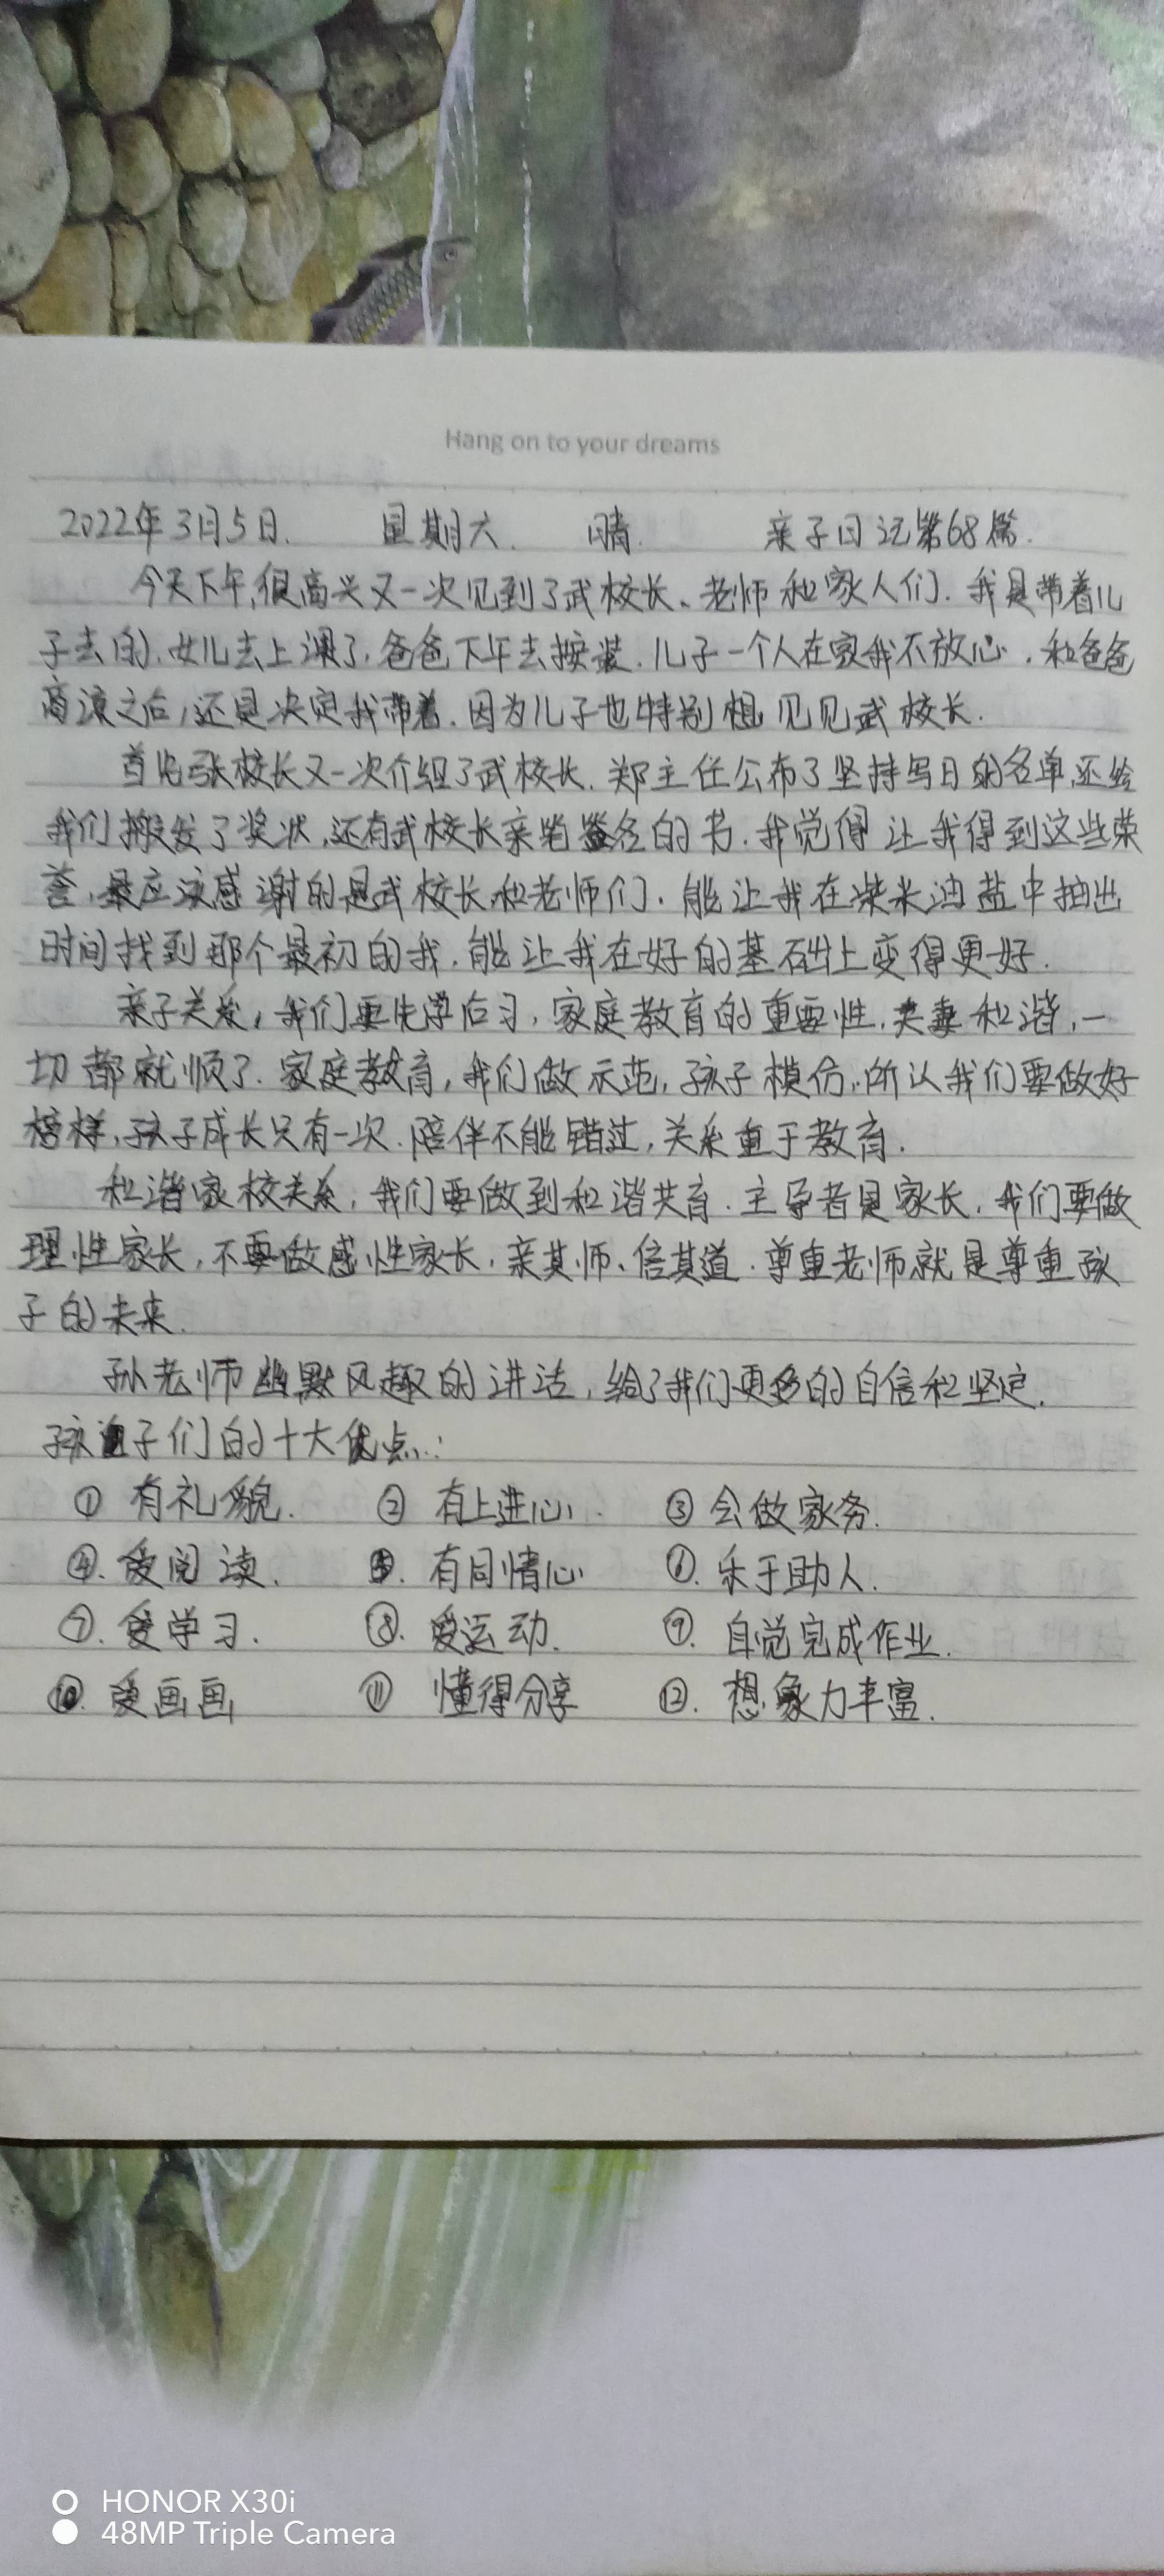 Hang on to your dreams
2022年3月5日. 星期六. 晴. 亲子日记第68篇.
今天下午,很高兴又一次见到了武校长、老师和家人们.我是带着儿
子去的.女儿去上课了.爸爸下午去按装.儿子一个人在家我不放心.和爸爸
商谅之后,还是决定我带着.因为儿子也特别想见见武校长.
首先张校长又一次介绍了武校长.郑主任公布了坚持写日的名单,还给
我们搬发了奖状,还有武校长亲笔签名的书.我觉得让我得到这些荣
誉,最应该感谢的是武校长和老师们.能让我在柴米油盐中抽出
时间找到那个最初的我.能让我在好的基础上变得更好.
亲子关系,我们要先学后习,家庭教育的重要性,夫妻和谐,一
切都就顺了.家庭教育,我们做示范,孩子模仿,所以我们要做好
榜样,孩子成长只有一次.陪伴不能错过,关系重于教育.
和谐家校关系,我们要做到和谐共育.主导者是家长,我们要做
理性家长,不要做感性家长,亲其师、信其道.尊重老师就是尊重孩
子的未来.
孙老师幽默风趣的讲话,给了我们更多的自信和坚定.
孩子们的十大优点:
① 有礼貌. ② 有上进心. ③ 会做家务.
④. 爱阅读. ⑤. 有同情心 ⑥. 乐于助人.
⑦. 爱学习. ⑧. 爱运动. ⑨. 自觉完成作业.
⑩. 爱画画 ⑪ 懂得分享 ⑫. 想象力丰富.
HONOR X30i
48MP Triple Camera